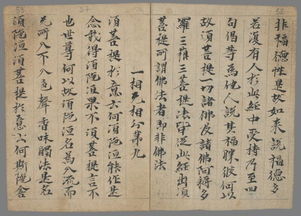 非福德性是故如来說福德多
若復有人於此經中受持乃至四
句偈等為他人說其福勝彼何以
故須菩提一切諸佛及諸佛阿耨多
羅三藐三菩提法皆從此經出須
菩提所謂佛法者即非佛法
一相无相分第九
須菩提於意云何須陀洹能作是
念我得須陀洹果不須菩提言不
也世尊何以故須陀洹名為入流而
无所入不入色聲香味觸法是名
須陀洹須菩提於意云何斯陀含